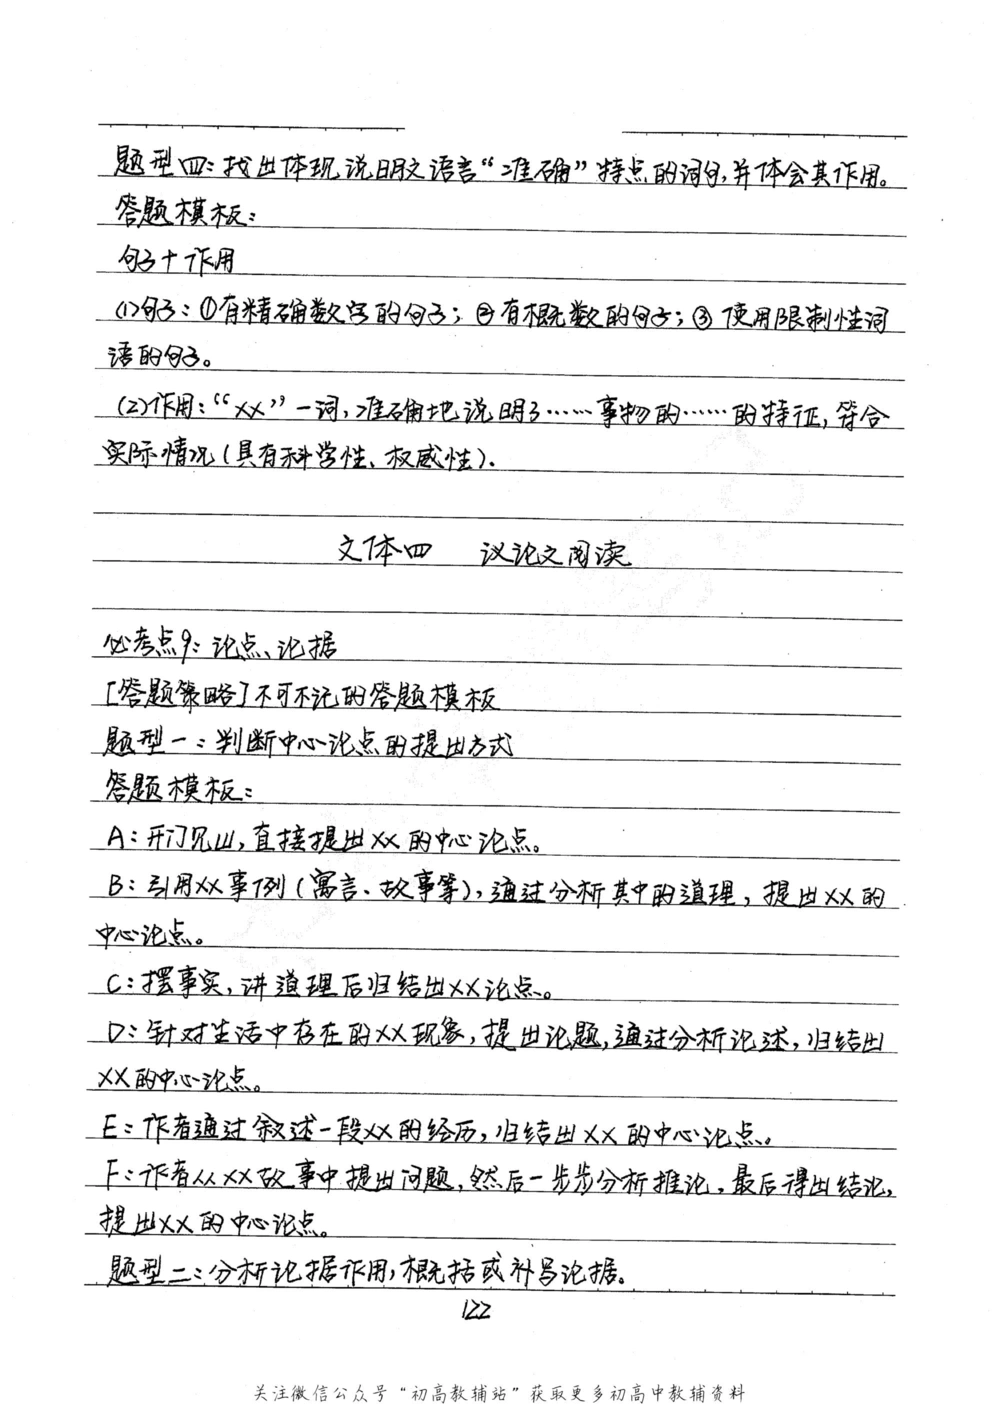 题型四：找出体现说明文语言“准确”特点的词句，并体会其作用。
答题模板：
句子+作用
(1)句子：①有精确数字的句子；②有概数的句子；③使用限制性词
语的句子。
(2)作用：“××”一词，准确地说明了……事物的……的特征，符合
实际情况（具有科学性、权威性）.
文体四 议论文阅读
必考点9：论点、论据
[答题策略]不可不记的答题模板
题型一：判断中心论点的提出方式
答题模板：
A：开门见山，直接提出××的中心论点。
B：引用××事例（寓言、故事等），通过分析其中的道理，提出××的
中心论点。
C：摆事实，讲道理后归结出××论点。
D：针对生活中存在的××现象，提出论题，通过分析论述，归结出
××的中心论点。
E：作者通过叙述一段××的经历，归结出××的中心论点。
F：作者从××故事中提出问题，然后一步步分析推论，最后得出结论，
提出××的中心论点。
题型二：分析论据作用，概括或补写论据。
122
关注微信公众号“初高教辅站”获取更多初高中教辅资料